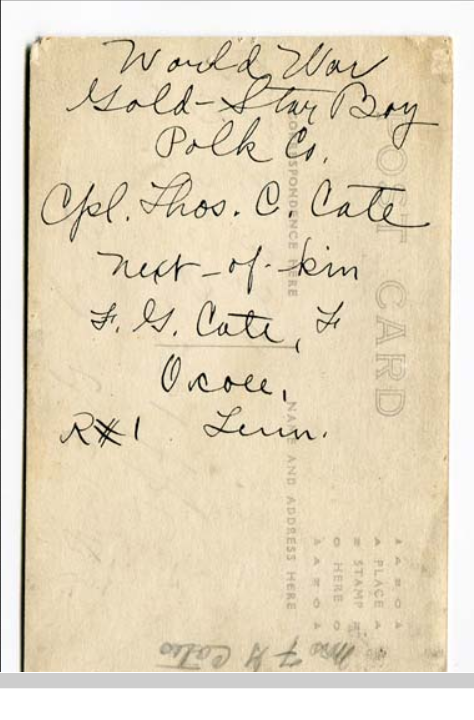 World War
Gold-Star Boy
Polk Co.
Cpl. Thos. C. Cate
next-of-kin
F. G. Cate, F
Ocoee,
R#1 Tenn.
POST CARD
CORRESPONDENCE HERE
NAME AND ADDRESS HERE
PLACE
STAMP
HERE
Mrs F G Cates